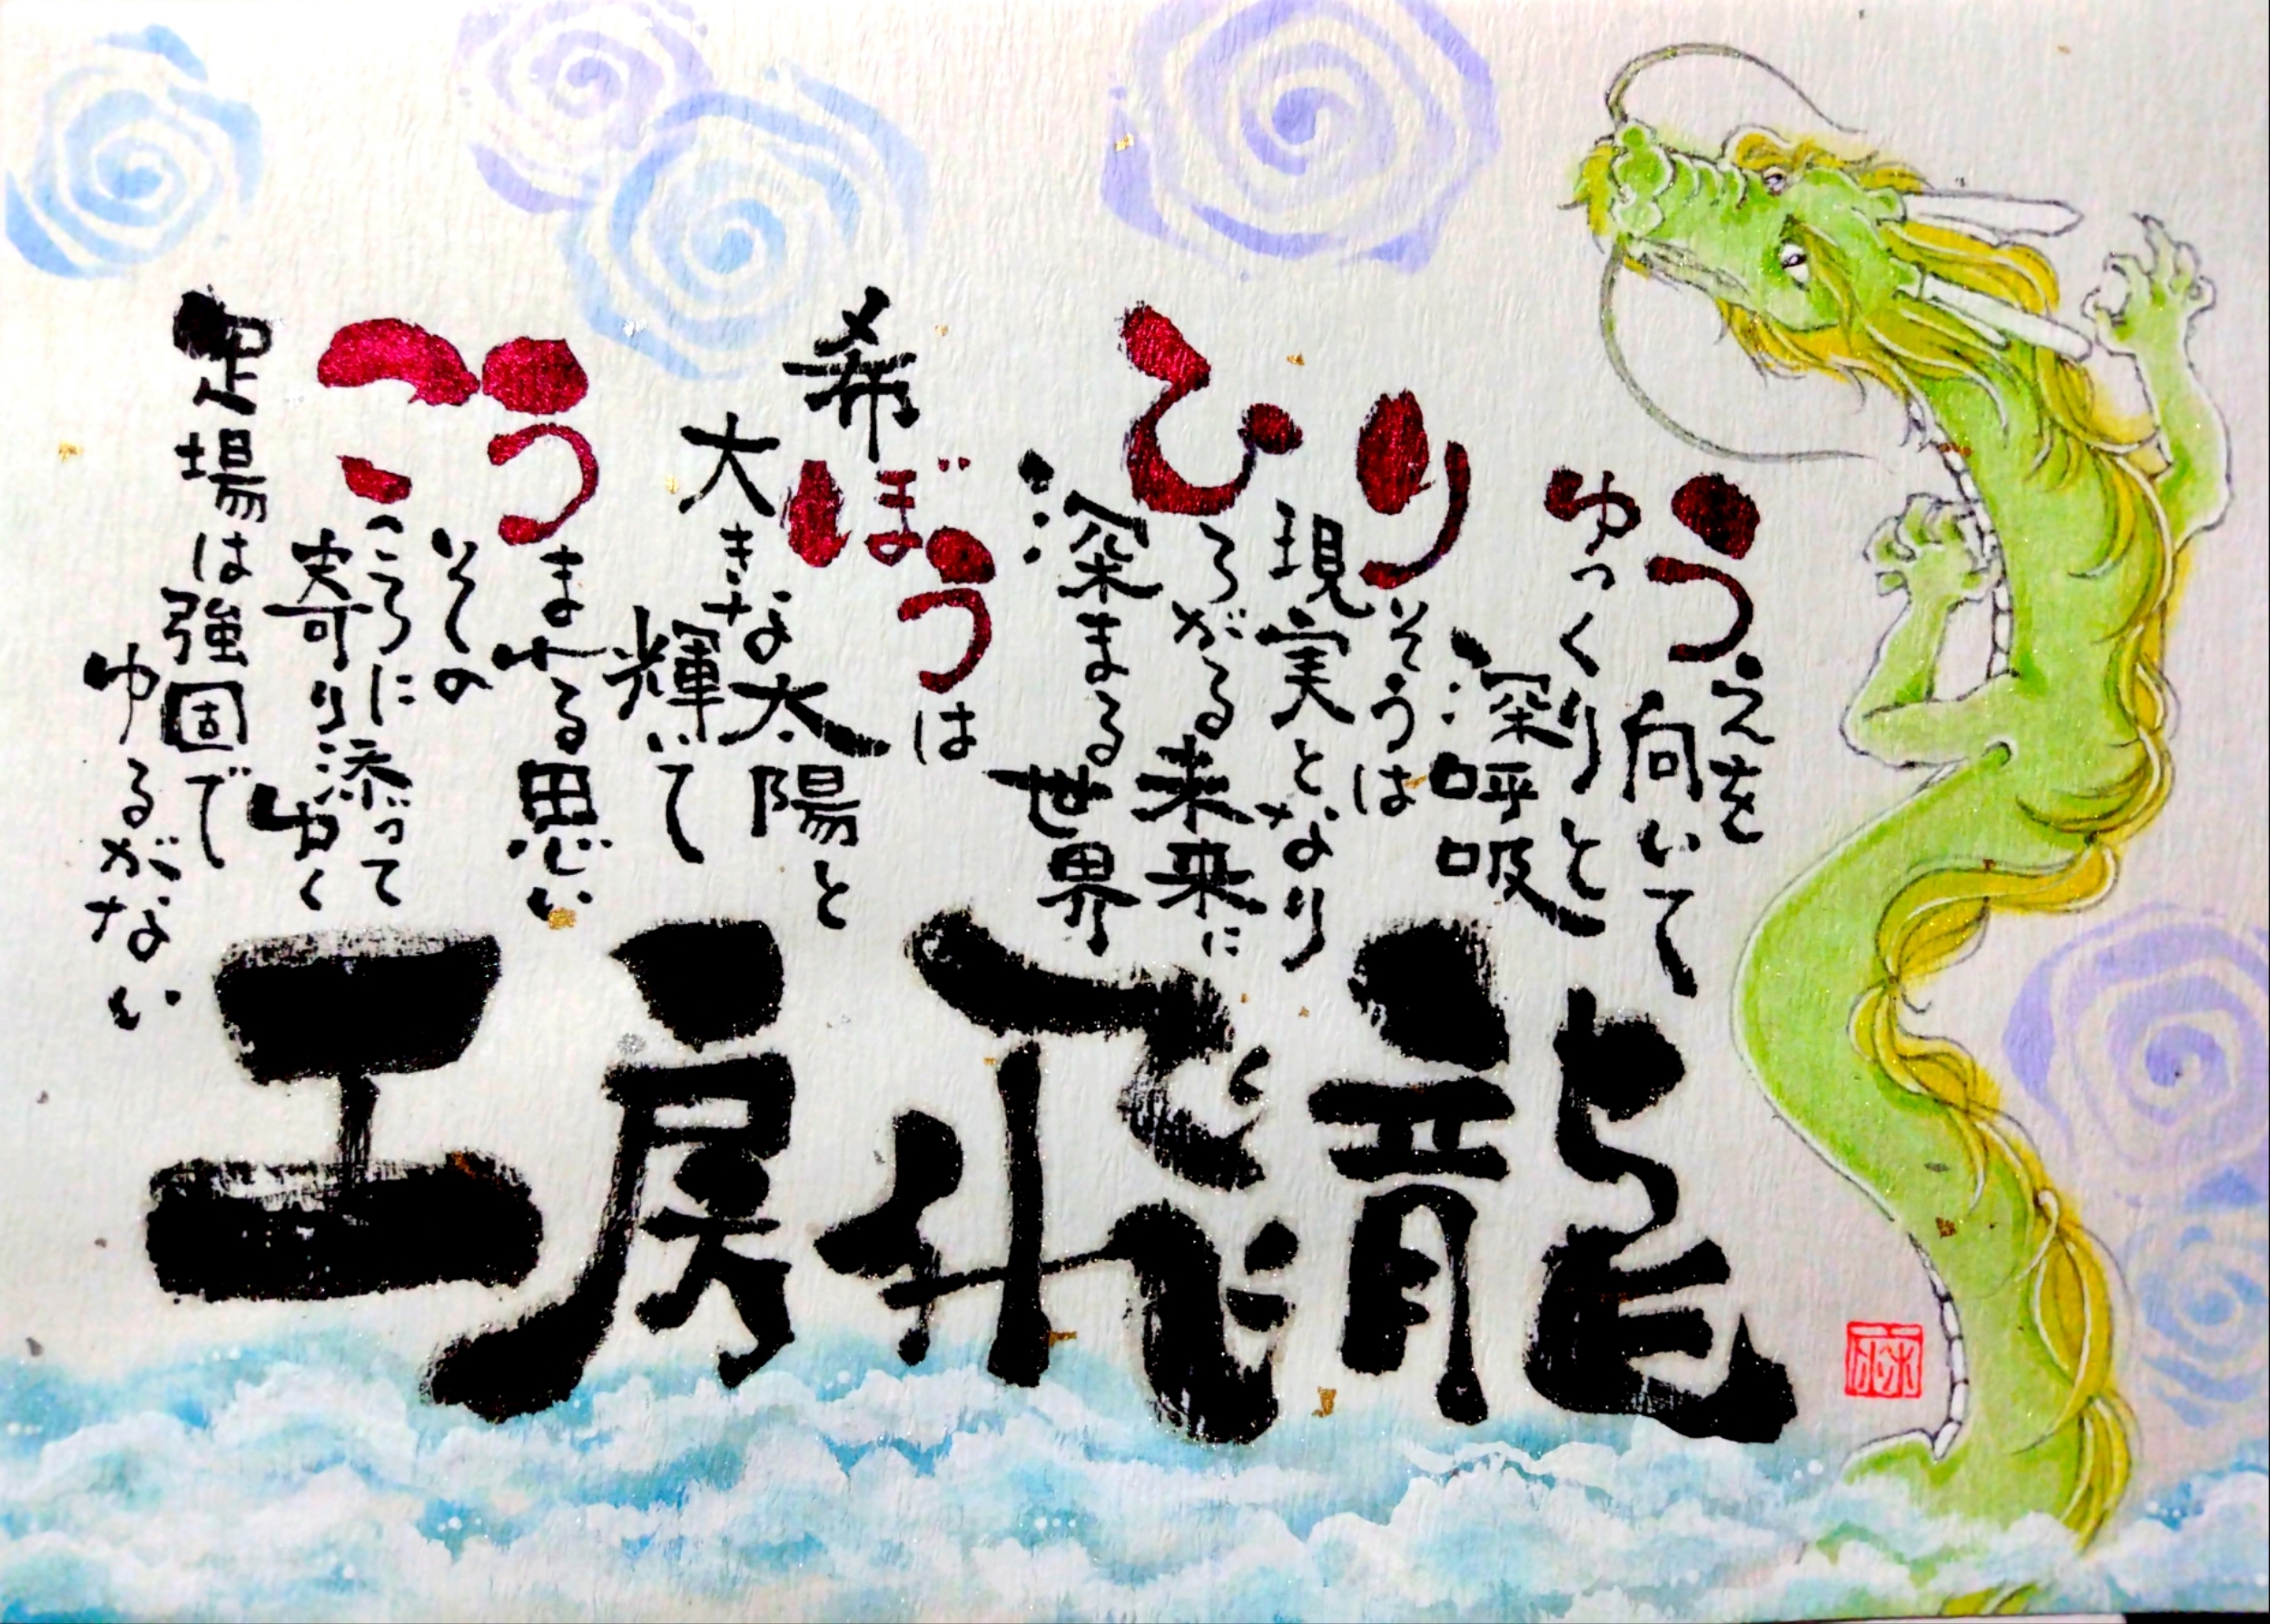 うえを
向いて
ゆっくりと
深呼吸
りそうは
現実となり
ひろがる未来に
深まる世界
希ぼうは
大きな太陽と
輝いて
うまれる思い
その
こころに
寄り添って
ゆく
足場は強固で
ゆるがない
工房飛龍